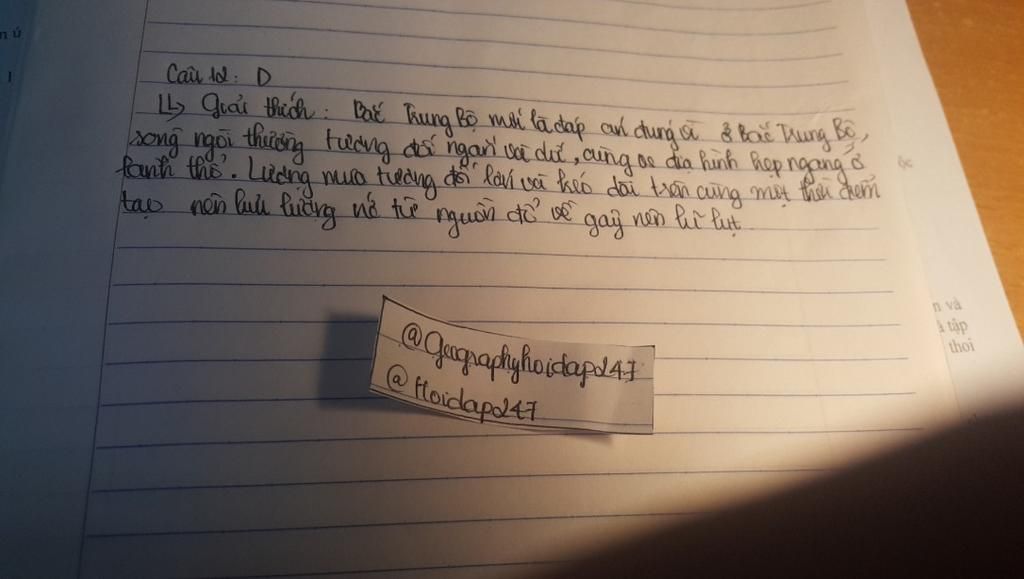 Câu 12: D
Giải thích: Bắc Trung Bộ mới là đáp án đúng vì ở Bắc Trung Bộ,
sông ngòi thường tương đối ngắn và dữ, cùng địa hình hẹp ngang ở
lãnh thổ. Lượng mưa tương đối lớn và kéo dài trên cùng một thời điểm
tạo nên lưu lượng nc từ nguồn đổ về gây nên lũ lụt
@Geographyhoidap247
@Hoidap247
n và
à tập
thoi